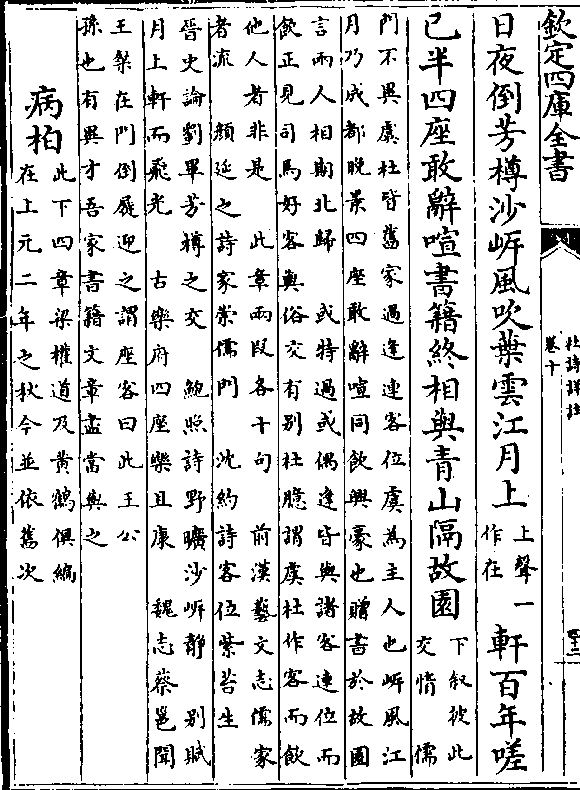 欽定四庫全書
杜詩詳註
卷十
日夜倒芳樽沙岍風吹葉雲江月上上聲一作在軒百年嗟
已半四座敢辭喧書籍終相與青山隔故園下叙彼此交情 儒
門不異虞杜皆舊家過逢連客位虞為主人也岍風江
月乃成都晚景四座敢辭喧同飲興豪也贈書於故園
言兩人相期北歸 或特過或偶逢皆與諸客連位而
飲正見司馬好客與俗交有别杜臆謂虞杜作客而飲
他人者非是 此章兩段各十句 前漢藝文志儒家
者流 顔延之詩家崇儒門 沈約詩客位紫苔生
晉史論劉畢芳樽之交 鮑照詩野曠沙岍静 别賦
月上軒而飛光 古樂府四座樂且康 魏志蔡邕聞
王粲在門倒屣迎之謂座客曰此王公
孫也有異才吾家書籍文章盡當與之
病柏此下四章梁權道及黄鶴俱編
在上元二年之秋今並依舊次